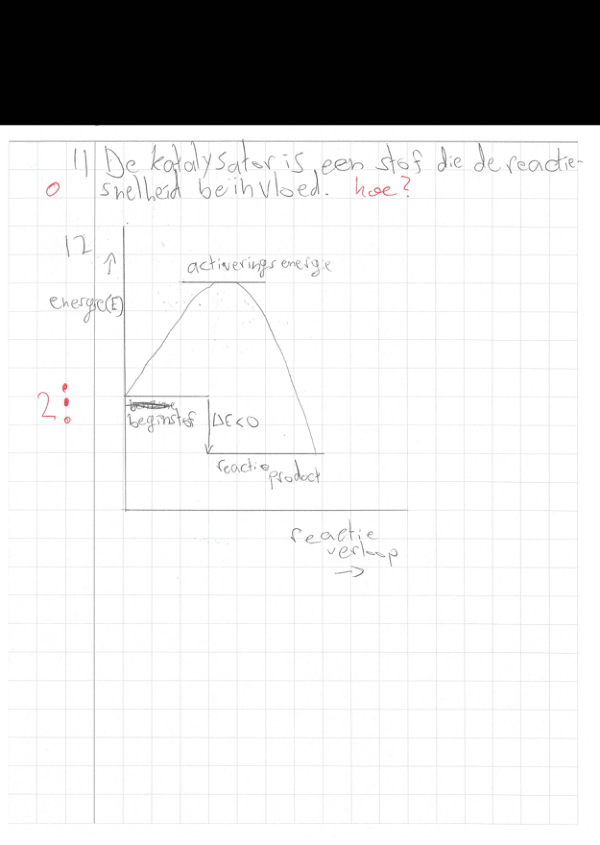 11 De katalysator is een stof die de reactie-
0 snelheid beïnvloed. hoe?
12
activerings energie
energie(E)
2
beginstof ΔE<0
reactie product
reactie
verloop
→